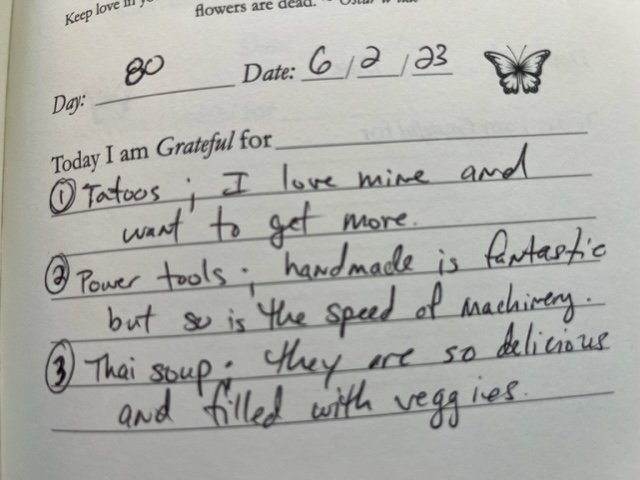 Keep love in
flowers are dead."
Day: 80 Date: 6/2/23
Today I am Grateful for
① Tatoos ; I love mine and
want to get more.
② Power tools ; handmade is fantastic
but so is the speed of machinery.
③ Thai soup ; they are so delicious
and filled with veggies.